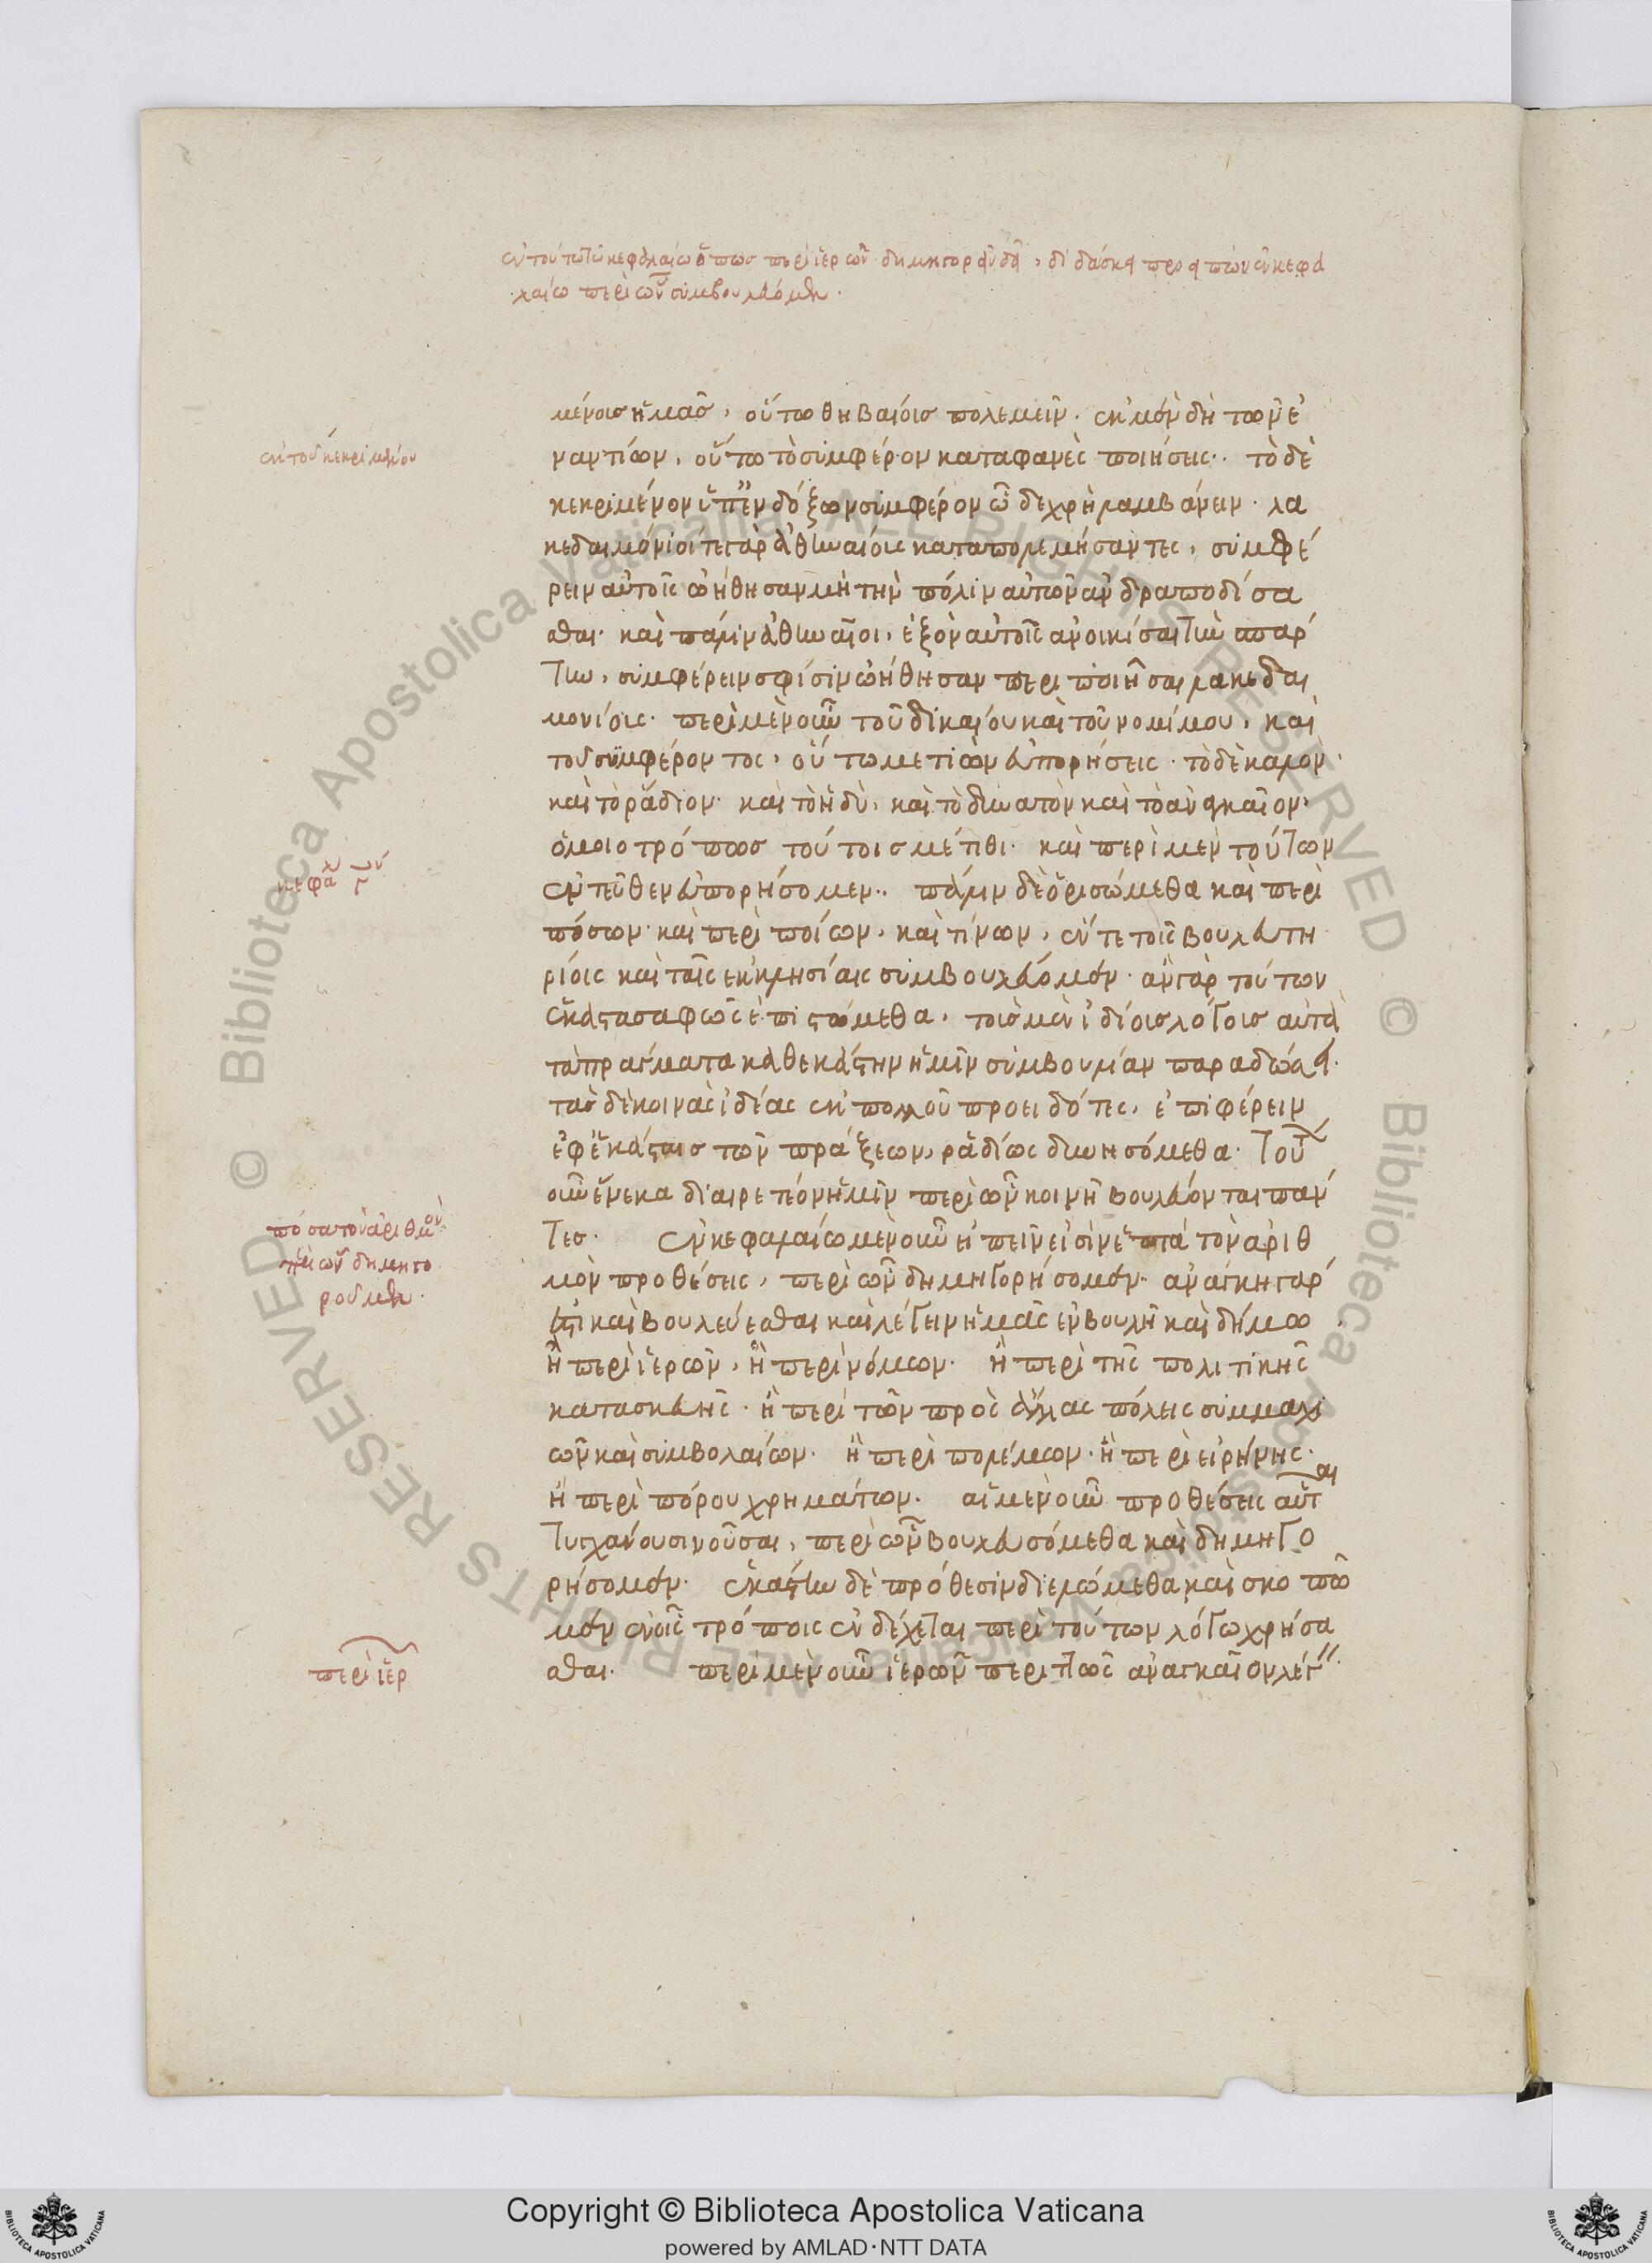 ἐν τούτω τῶ κεφαλαίω ὅπως περὶ ἱερῶν δημηγορεῖν δεῖ, διδάσκει προειπὼν ἐν κεφα
λαίω περὶ ὧν συμβουλεύομεν.
μένοις ἡμᾶς, οὕτω θηβαίοις πολεμεῖν. ἐκ μὲν δὴ τῶν ἐ
ἐκ τοῦ κεκριμένου
ναντίων, οὕτω τὸ συμφέρον καταφανὲς ποιήσεις. τὸ δὲ
κεκριμένον ὑπ' ἐνδόξων συμφέρον ὧδε χρὴ λαμβάνειν. λα
κεδαιμόνιοί τε γὰρ ἀθηναίοις καταπολεμήσαντες, συμφέ
ρειν αὐτοῖς ὠήθησαν μὴ τὴν πόλιν αὐτῶν ἀνδραποδίσα
σθαι. καὶ πάλιν ἀθηναῖοι, ἐξὸν αὐτοῖς ἀνοικίσαι τὴν σπάρ
την, συμφέρειν σφίσιν ὠήθησαν περιποιῆσαι λακεδαι
μονίοις. περὶ μὲν οὖν τοῦ δικαίου καὶ τοῦ νομίμου, καὶ
τοῦ συμφέροντος, οὕτω μετιὼν εὐπορήσεις. τὸ δὲ καλὸν.
καὶ τὸ ῥάδιον. καὶ τὸ ἡδὺ, καὶ τὸ δυνατὸν καὶ τὸ ἀναγκαῖον.
ὁμοιοτρόπως τούτοις μέτιθι. καὶ περὶ μὲν τούτων
κεφαλ γον
ἐντεῦθεν εὐπορήσομεν. πάλιν δὲ ὁρισώμεθα καὶ περὶ
πόσων καὶ περὶ ποίων, καὶ τίνων, ἔν τε τοῖς βουλευτη
ρίοις καὶ ταῖς ἐκκλησίαις συμβουλεύομεν. ἂν γὰρ τούτων
ἕκαστα σαφῶς ἐπιστώμεθα, τοὺς μὲν ἰδίοις λόγοις αὐτὰ
τὰ πράγματα καθ' ἑκάστην ἡμῖν συμβουλίαν παραδώσει.
τὰς δὲ κοινὰς ἰδέας ἐκ πολλοῦ προειδότες, ἐπιφέρειν
ἐφ' ἑκάσταις τῶν πράξεων, ῥαδίως δυνησόμεθα. τούτ
οὖν ἕνεκα διαιρετέον ἡμῖν περὶ ὧν κοινῆ βουλεύονται πάν
τες. ἐν κεφαλαίω μὲν οὖν εἰπεῖν εἰσὶν ἑπτὰ τὸν ἀριθ
πόσα τὸν ἀριθμὸν
περὶ ὧν δημηγο
ροῦμεν.
μὸν προθέσεις, περὶ ὧν δημηγορήσομεν. ἀνάγκη γάρ
ἐστι καὶ βουλεύεσθαι καὶ λέγειν ἡμᾶς ἐν βουλῆ καὶ δήμω
ἢ περὶ ἱερῶν, ἢ περὶ νόμων. ἢ περὶ τῆς πολιτικῆς
κατασκευῆς. ἢ περὶ τῶν πρὸς ἄλλας πόλεις συμμαχι
ῶν καὶ συμβολαίων. ἢ περὶ πολέμων. ἢ περὶ εἰρήνης.
ἢ περὶ πόρου χρημάτων. αἱ μὲν οὖν προθέσεις αὗται
τυγχάνουσιν οὖσαι, περὶ ὧν βουλευσόμεθα καὶ δημηγο
ρήσομεν. ἑκάστην δὲ πρόθεσιν διελώμεθα καὶ σκοπῶ
μεν ἐν οἷς τρόποις ἐνδέχεται περὶ τούτων λόγω χρήσα
περὶ ἱερ
σθαι. περὶ μὲν οὖν ἱερῶν περιττῶς ἀναγκαῖον λέγ
Copyright © Biblioteca Apostolica Vaticana
powered by AMLAD·NTT DATA